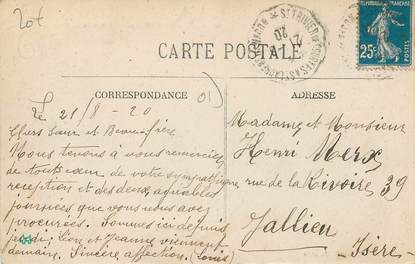 20f
CARTE POSTALE
RÉPUBLIQUE FRANÇAISE
25c
POSTES
21
20
CORRESPONDANCE
ADRESSE
Le 21/8-20
Chers Sœur et Beau-frère
Nous tenons à vous remercier
de tout cœur de votre sympathique
réception et des deux agréables
journées que vous nous avez
procurées. Sommes ici depuis
jeudi; Léon et Jeanne viennent
demain. Sincère affection (Louis)
Madame et Monsieur
Henri Merx
rue de la Rivoire 39
Jallieu
Isère